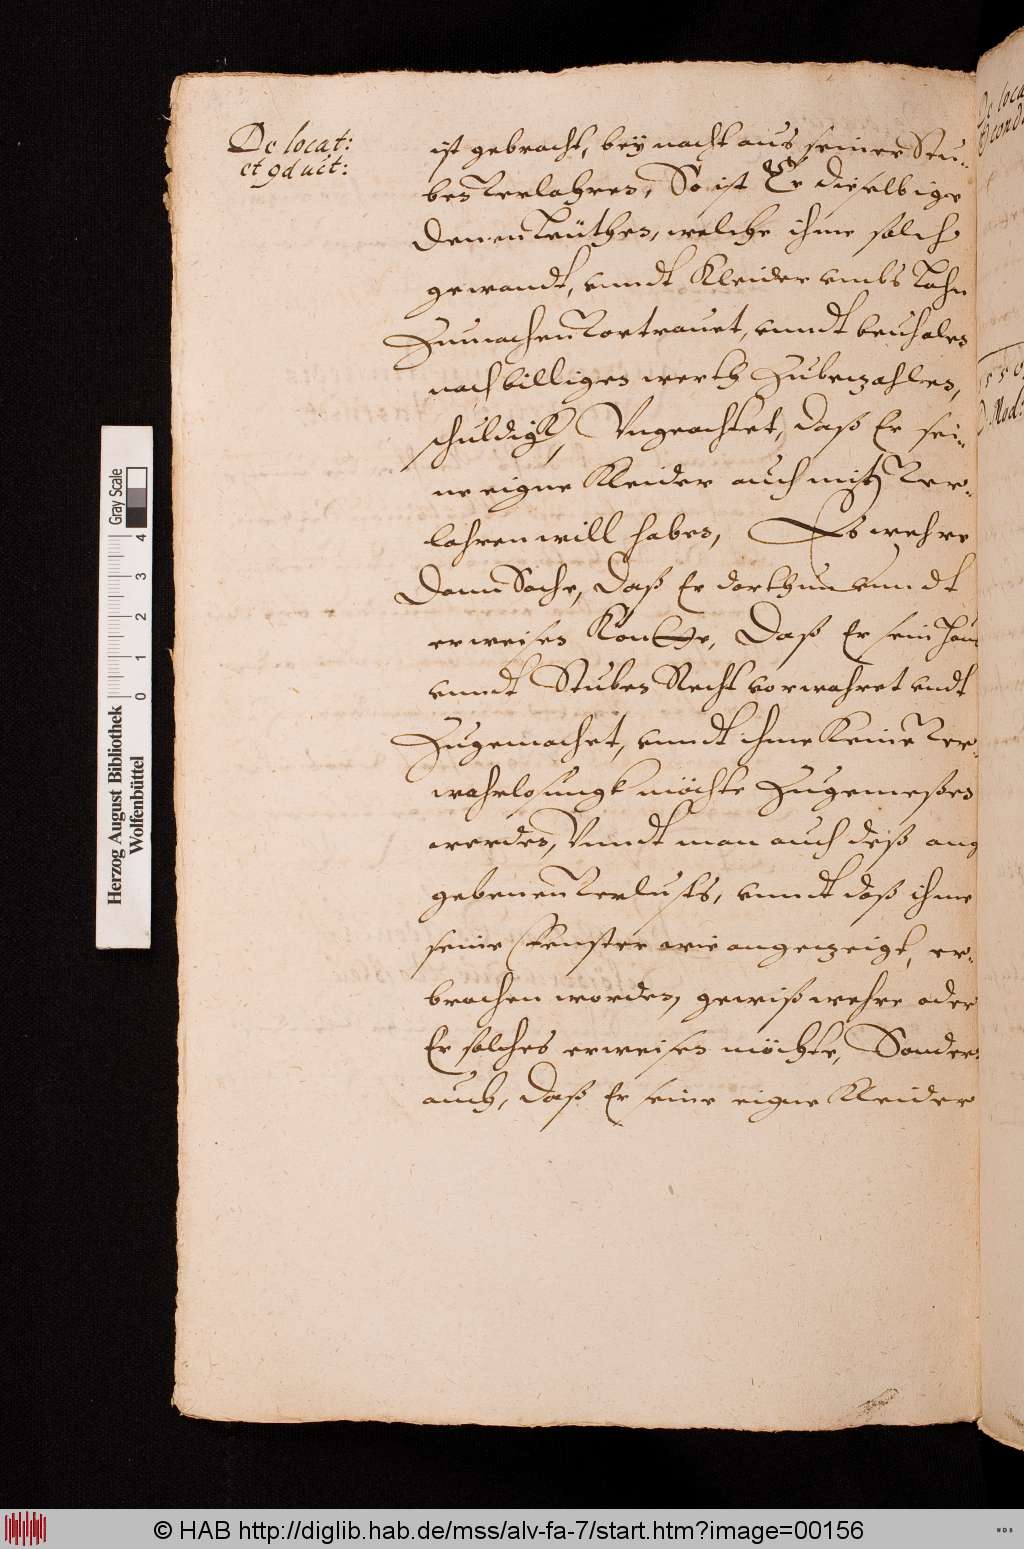 De locat:
et 9duct:
ist gebracht, bey nacht aus seiner Stu-
ben verlohren, So ist Er dieselbige
denen Leüthen, welche ihme solch
gewandt, vnndt Kleider vmbs Lohn
Zumachen vortrauet, vnndt
nach billigen werth Zubezahlen,
schuldigk, Vngeachtet, daß Er sei-
ne eigne Kleider auch mit ver-
lohren will haben, Es wehre
dann Sache, daß Er darthun vnndt
erweisen Kontte, daß Er sein Hau
vnndt Stuben Recht vorwahret vndt
Zugemachet, vnndt ihme Keine ver-
wahrlosungk möchte Zugemeßen
werden, Vnndt man auch deß ang
gebenen verlusts, vnndt daß ihme
seine Fenster wie angezeigt, er-
brochen worden, gewiß wehre oder
Er solches erweisen möchte, Sonder
auch, daß Er seine eigne Kleider
De loca
cond
Mod:
Gray Scale
0 1 2 3 4
Herzog August Bibliothek
Wolfenbüttel
© HAB http://diglib.hab.de/mss/alv-fa-7/start.htm?image=00156